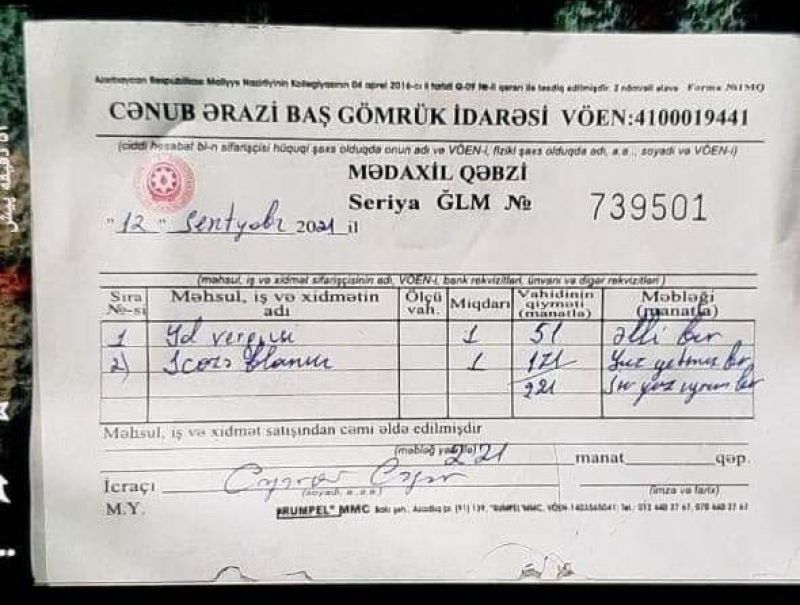 Azərbaycan Respublikası Maliyyə Nazirliyinin Kollegiyasının 04 aprel 2016-cı il tarixli Q-09 №-li qərarı ilə təsdiq edilmişdir. 2 nömrəli əlavə Forma №1MQ
CƏNUB ƏRAZİ BAŞ GÖMRÜK İDARƏSİ VÖEN:4100019441
(ciddi hesabat bl-n sifarişçisi hüquqi şəxs olduqda onun adı və VÖEN-i, fiziki şəxs olduqda adı, a.a., soyadı və VÖEN-i)
MƏDAXİL QƏBZİ
Seriya ĞLM № 739501
"12" sentyabr 2021 il
(məhsul, iş və xidmət sifarişçisinin adı, VÖEN-i, bank rekvizitləri, ünvanı və digər rekvizitləri)
Sıra №-si Məhsul, iş və xidmətin adı Ölçü vah. Miqdarı Vahidinin qiyməti (manatla) Məbləği (manatla)
1 Yol vergisi 1 51 əlli bir
2) 1 171 Yuz yetmiş bir
221
Məhsul, iş və xidmət satışından cəmi əldə edilmişdir
221 manat qəp.
İcraçı
(soyadı, a.,a.) (imza və tarix)
M.Y. "RUMPEL" MMC Bakı şəh., Azadlıq pr.